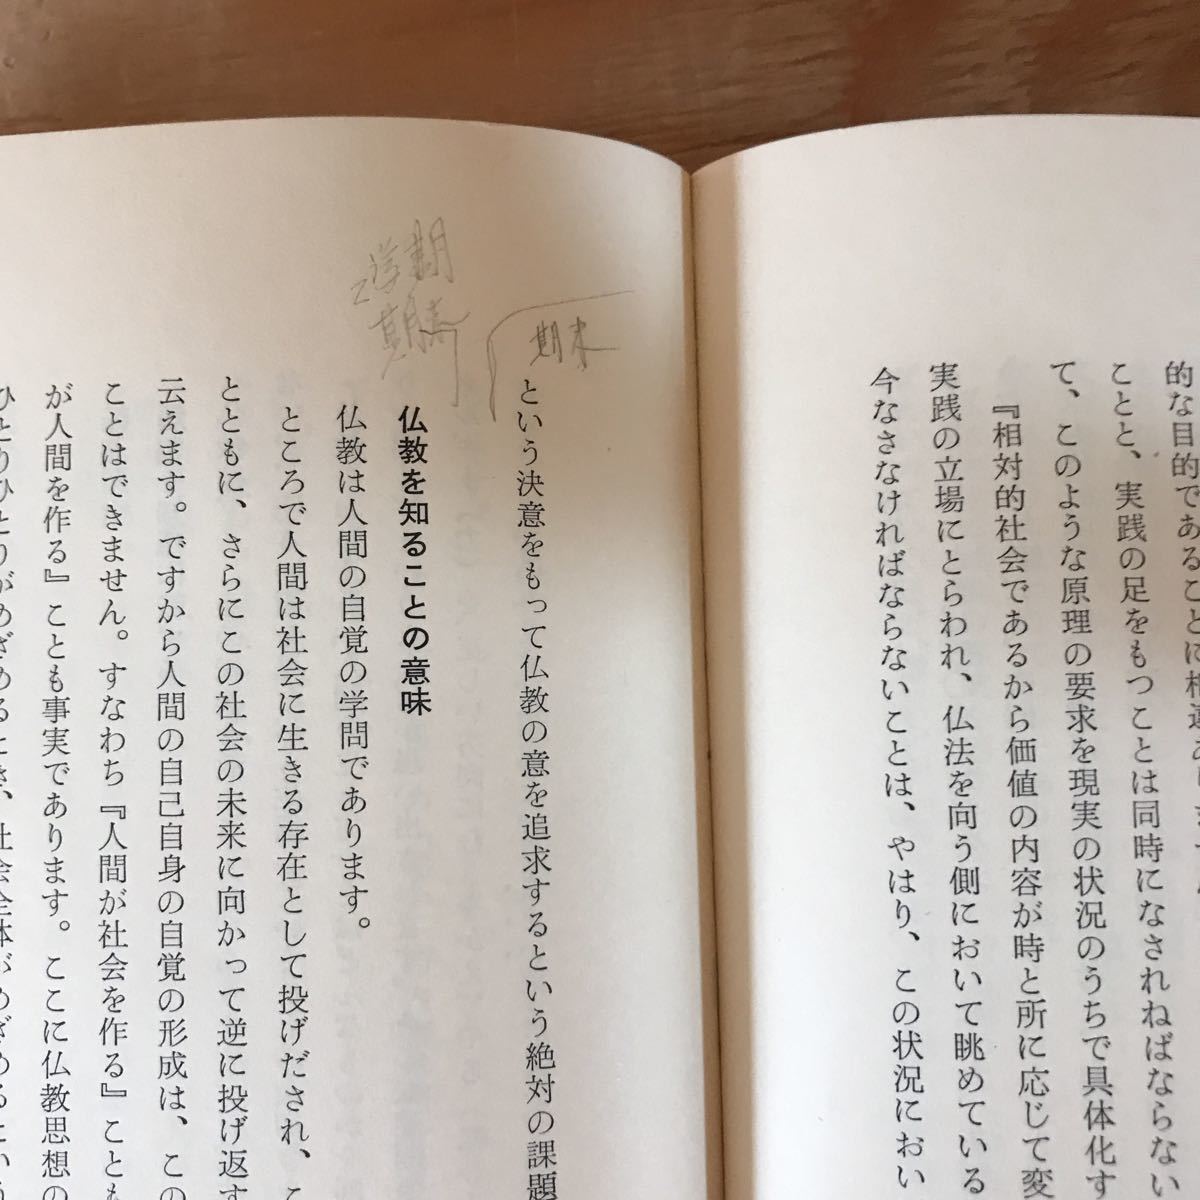 的な目的であることに相違ありません
ことと、実践の足をもつことは同時になされねばならない
て、このような原理の要求を現実の状況のうちで具体化す
『相対的社会であるから価値の内容が時と所に応じて変
実践の立場にとらわれ、仏法を向う側において眺めている
今なさなければならないことは、やはり、この状況におい
期末
という決意をもって仏教の意を追求するという絶対の課題
2学期
期末
仏教を知ることの意味
仏教は人間の自覚の学問であります。
ところで人間は社会に生きる存在として投げだされ、こ
とともに、さらにこの社会の未来に向かって逆に投げ返す
云えます。ですから人間の自己自身の自覚の形成は、この
ことはできません。すなわち『人間が社会を作る』ことも
が人間を作る』ことも事実であります。ここに仏教思想の
ひとりひとりがめざめるとき、社会全体がめざめるという